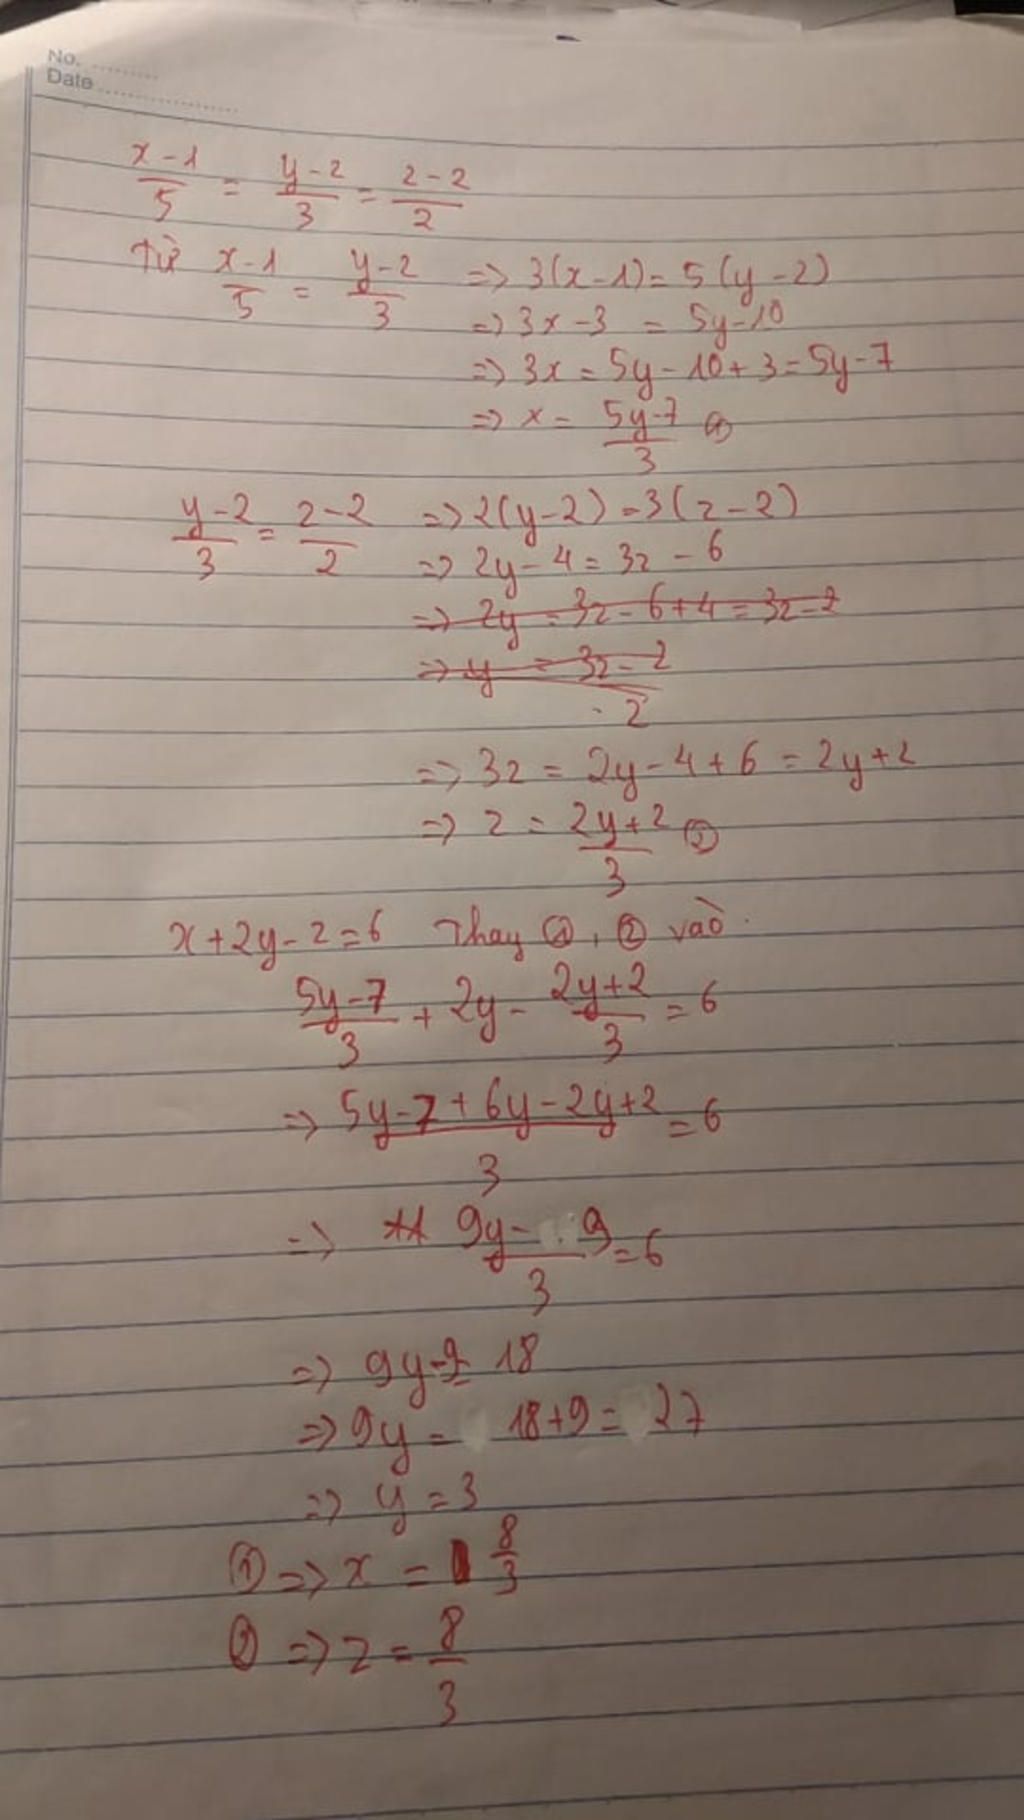 No. .........
Date ......................
x-1/5 = y-2/3 = z-2/2
Từ x-1/5 = y-2/3 => 3(x-1) = 5(y-2)
=> 3x-3 = 5y-10
=> 3x = 5y-10+3 = 5y-7
=> x = 5y-7/3 ①
y-2/3 = z-2/2 => 2(y-2) = 3(z-2)
=> 2y-4 = 3z-6
=> 2y = 3z-6+4 = 3z-2
=> y = 3z-2/2
=> 3z = 2y-4+6 = 2y+2
=> z = 2y+2/3 ②
x+2y-z=6 Thay ①, ② vào
5y-7/3 + 2y - 2y+2/3 = 6
=> 5y-7+6y-2y+2/3 = 6
=> 9y-9/3 = 6
=> 9y-9= 18
=> 9y = 18+9 = 27
=> y = 3
① => x = 8/3
② => z = 8/3